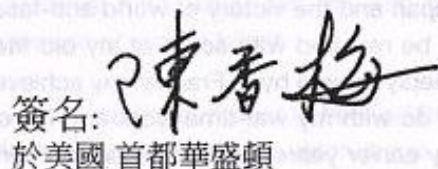 簽名: 陳香梅
於美國 首都華盛頓